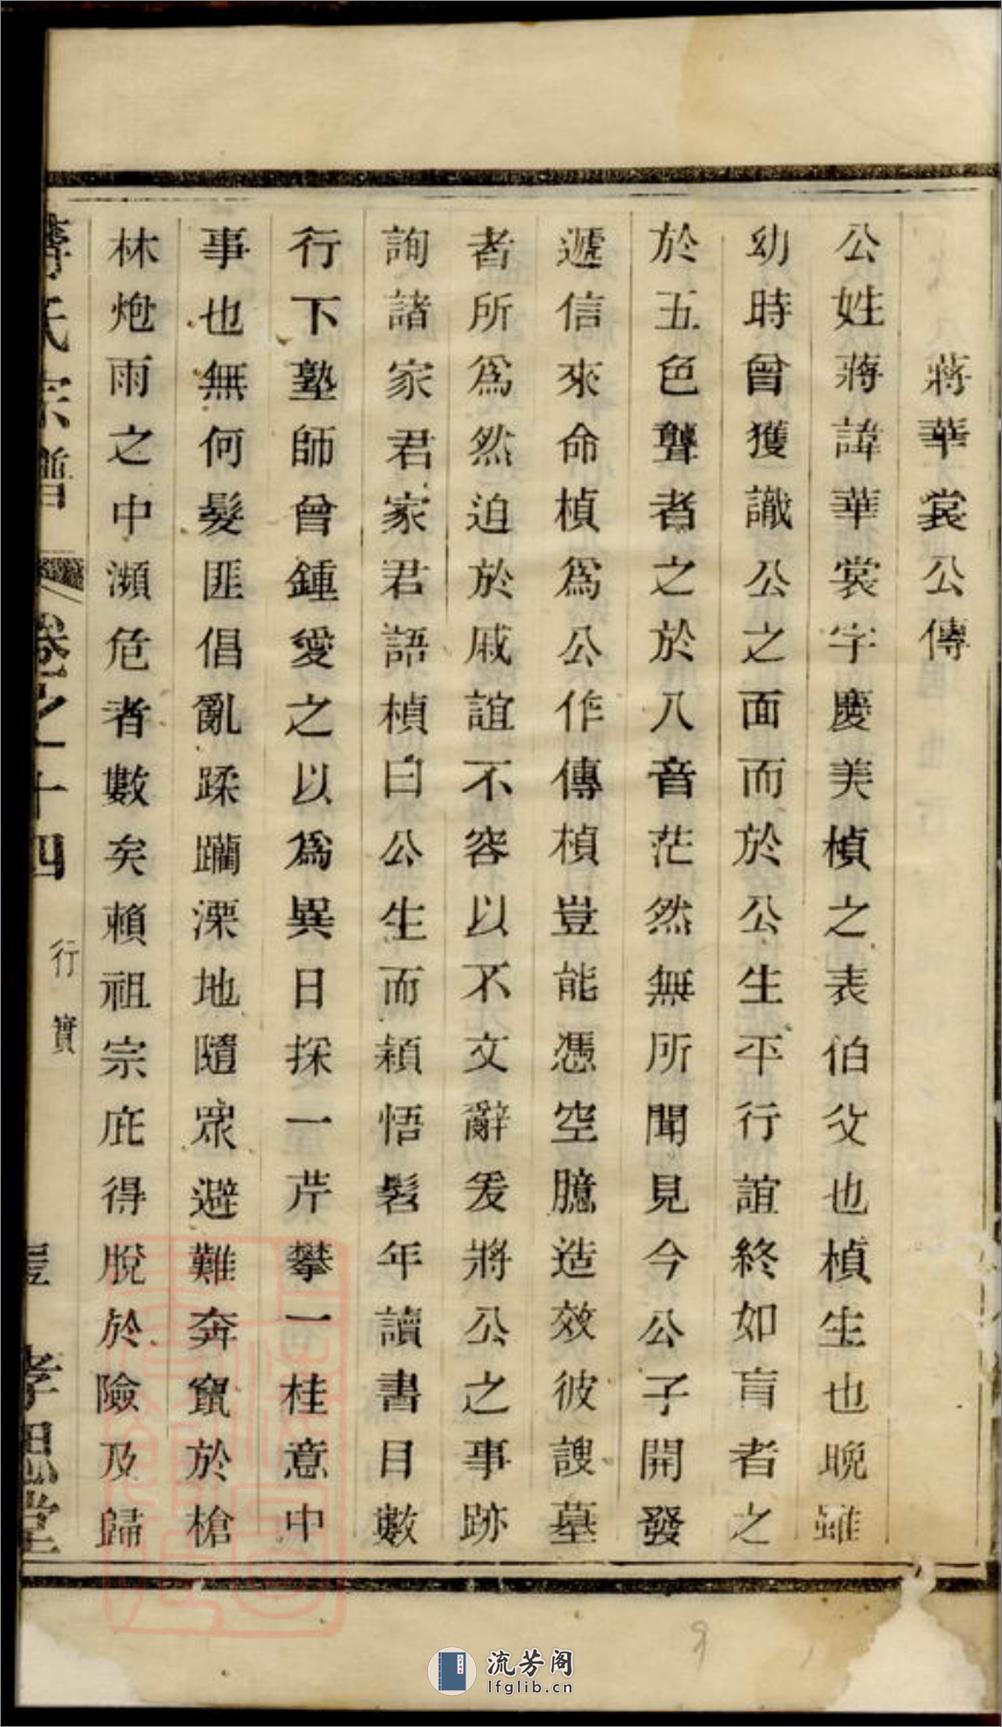 蔣華裳公傳
公姓蔣諱華裳字慶美楨之表伯父也楨生也晚雖
幼時曾獲識公之面而於公生平行誼終如盲者之
於五色聾者之於八音茫然無所聞見今公子開發
遞信來命楨爲公作傳楨豈能憑空臆造效彼諛墓
者所爲然迫於戚誼不容以不文辭爰將公之事跡
詢諸家君家君語楨曰公生而穎悟髫年讀書目數
行下塾師曾鍾愛之以爲異日採一芹攀一桂意中
事也無何髮匪倡亂蹂躪溧地隨眾避難奔竄於槍
林炮雨之中瀕危者數矣賴祖宗庇得脫於險及歸
蔣氏宗譜 卷之十四 行實 孝思堂
流芳阁
lfglib.cn